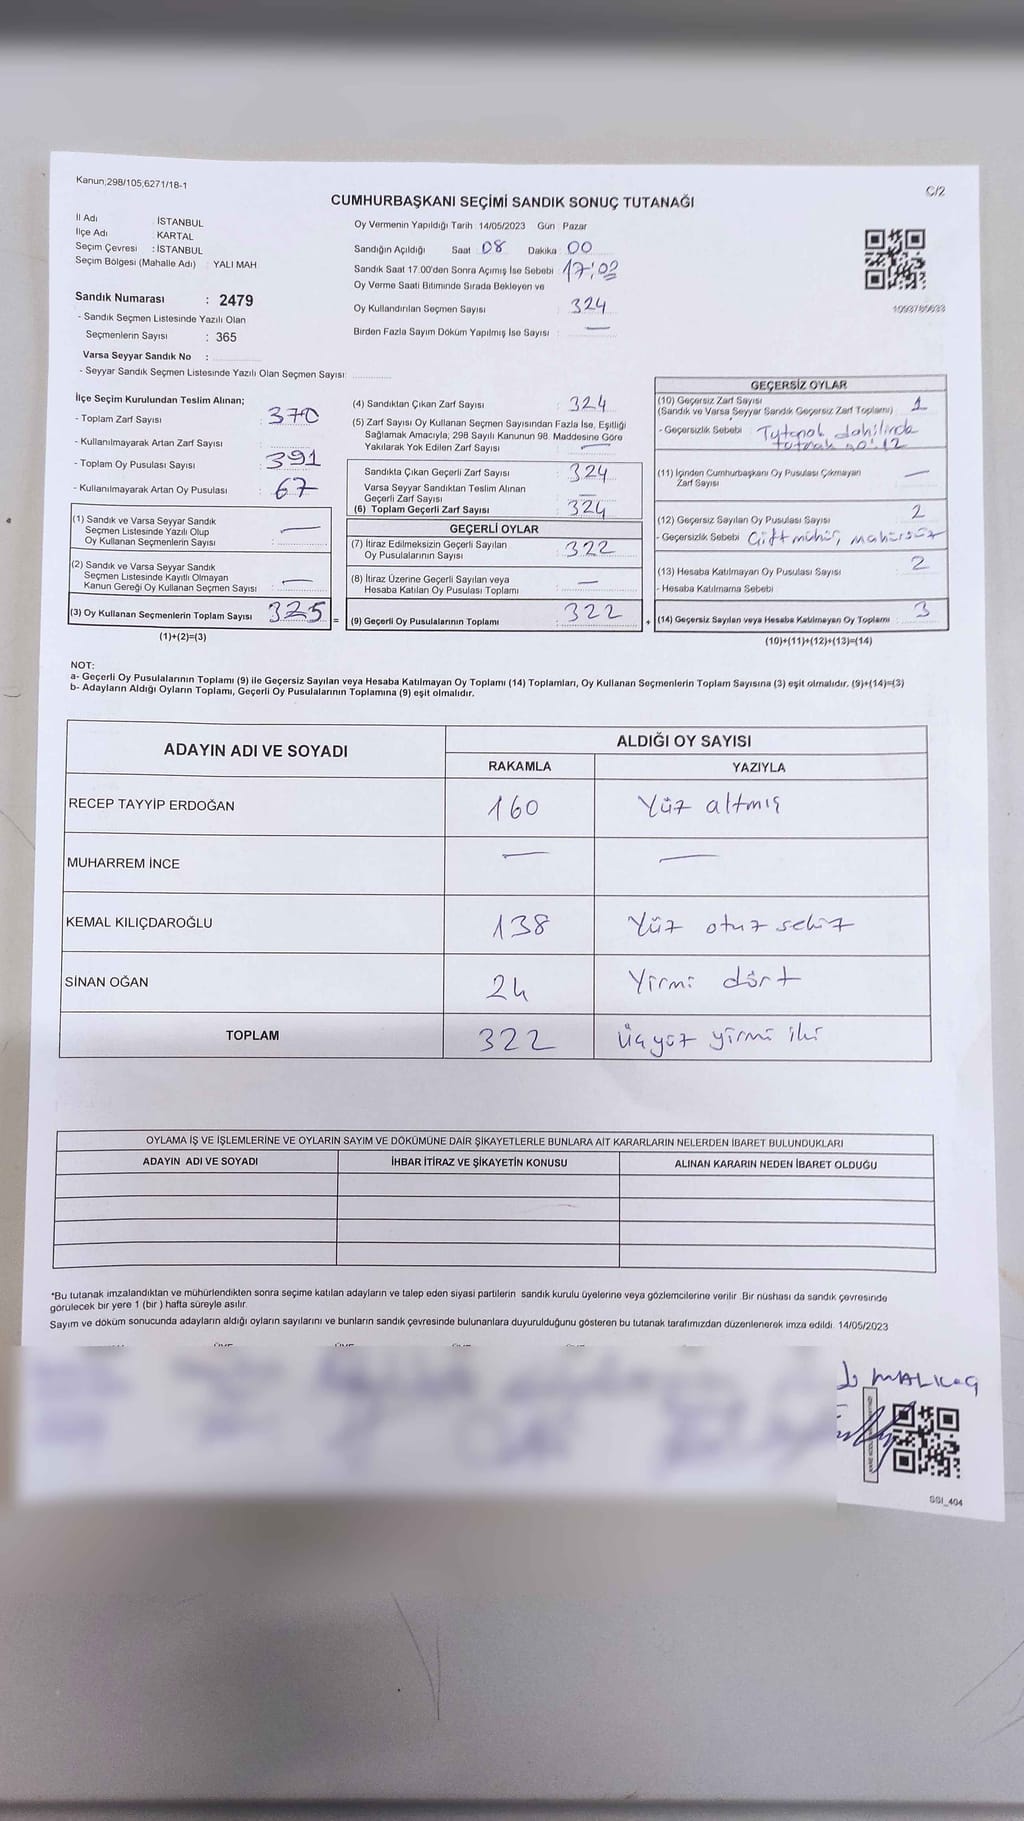 Kanun;298/105;6271/18-1
C/2
CUMHURBAŞKANI SEÇİMİ SANDIK SONUÇ TUTANAĞI
İl Adı : İSTANBUL
İlçe Adı : KARTAL
Seçim Çevresi : İSTANBUL
Seçim Bölgesi (Mahalle Adı) : YALI MAH
Sandık Numarası : 2479
- Sandık Seçmen Listesinde Yazılı Olan
Seçmenlerin Sayısı : 365
Varsa Seyyar Sandık No :
- Seyyar Sandık Seçmen Listesinde Yazılı Olan Seçmen Sayısı:
Oy Vermenin Yapıldığı Tarih : 14/05/2023 Gün : Pazar
Sandığın Açıldığı Saat : 08 Dakika : 00
Sandık Saat 17.00'den Sonra Açımış İse Sebebi : 17:02
Oy Verme Saati Bitiminde Sırada Bekleyen ve
Oy Kullandırılan Seçmen Sayısı : 324
Birden Fazla Sayım Döküm Yapılmış İse Sayısı : —
1093786633
İlçe Seçim Kurulundan Teslim Alınan;
- Toplam Zarf Sayısı : 370
- Kullanılmayarak Artan Zarf Sayısı :
- Toplam Oy Pusulası Sayısı : 391
- Kullanılmayarak Artan Oy Pusulası : 67
(1) Sandık ve Varsa Seyyar Sandık
Seçmen Listesinde Yazılı Olup
Oy Kullanan Seçmenlerin Sayısı : —
(2) Sandık ve Varsa Seyyar Sandık
Seçmen Listesinde Kayıtlı Olmayan
Kanun Gereği Oy Kullanan Seçmen Sayısı : —
(3) Oy Kullanan Seçmenlerin Toplam Sayısı : 325 =
(1)+(2)=(3)
(4) Sandıktan Çıkan Zarf Sayısı : 324
(5) Zarf Sayısı Oy Kullanan Seçmen Sayısından Fazla İse, Eşitliği
Sağlamak Amacıyla; 298 Sayılı Kanunun 98. Maddesine Göre
Yakılarak Yok Edilen Zarf Sayısı : —
Sandıkta Çıkan Geçerli Zarf Sayısı : 324
Varsa Seyyar Sandıktan Teslim Alınan
Geçerli Zarf Sayısı : —
(6) Toplam Geçerli Zarf Sayısı : 324
GEÇERLİ OYLAR
(7) İtiraz Edilmeksizin Geçerli Sayılan
Oy Pusulalarının Sayısı : 322
(8) İtiraz Üzerine Geçerli Sayılan veya
Hesaba Katılan Oy Pusulası Toplamı : —
(9) Geçerli Oy Pusulalarının Toplamı : 322 +
GEÇERSİZ OYLAR
(10) Geçersiz Zarf Sayısı
(Sandık ve Varsa Seyyar Sandık Geçersiz Zarf Toplamı) : 1
- Geçersizlik Sebebi : Tutanak dahilinde
tutnak no: 12
(11) İçinden Cumhurbaşkanı Oy Pusulası Çıkmayan
Zarf Sayısı : —
(12) Geçersiz Sayılan Oy Pusulası Sayısı : 2
- Geçersizlik Sebebi : Çift mühür, mühürsüz
(13) Hesaba Katılmayan Oy Pusulası Sayısı : 2
- Hesaba Katılmama Sebebi
(14) Geçersiz Sayılan veya Hesaba Katılmayan Oy Toplamı : 3
(10)+(11)+(12)+(13)=(14)
NOT:
a- Geçerli Oy Pusulalarının Toplamı (9) ile Geçersiz Sayılan veya Hesaba Katılmayan Oy Toplamı (14) Toplamları, Oy Kullanan Seçmenlerin Toplam Sayısına (3) eşit olmalıdır. (9)+(14)=(3)
b- Adayların Aldığı Oyların Toplamı, Geçerli Oy Pusulalarının Toplamına (9) eşit olmalıdır.
ADAYIN ADI VE SOYADI ALDIĞI OY SAYISI
RAKAMLA YAZIYLA
RECEP TAYYİP ERDOĞAN 160 Yüz altmış
MUHARREM İNCE — —
KEMAL KILIÇDAROĞLU 138 Yüz otuz sekiz
SİNAN OĞAN 24 Yirmi dört
TOPLAM 322 Üçyüz yirmi iki
OYLAMA İŞ VE İŞLEMLERİNE VE OYLARIN SAYIM VE DÖKÜMÜNE DAİR ŞİKAYETLERLE BUNLARA AİT KARARLARIN NELERDEN İBARET BULUNDUKLARI
ADAYIN ADI VE SOYADI İHBAR İTİRAZ VE ŞİKAYETİN KONUSU ALINAN KARARIN NEDEN İBARET OLDUĞU
*Bu tutanak imzalandıktan ve mühürlendikten sonra seçime katılan adayların ve talep eden siyasi partilerin sandık kurulu üyelerine veya gözlemcilerine verilir .Bir nüshası da sandık çevresinde
görülecek bir yere 1 (bir ) hafta süreyle asılır.
Sayım ve döküm sonucunda adayların aldığı oyların sayılarını ve bunların sandık çevresinde bulunanlara duyurulduğunu gösteren bu tutanak tarafımızdan düzenlenerek imza edildi. 14/05/2023
MALKOÇ
SSI_404